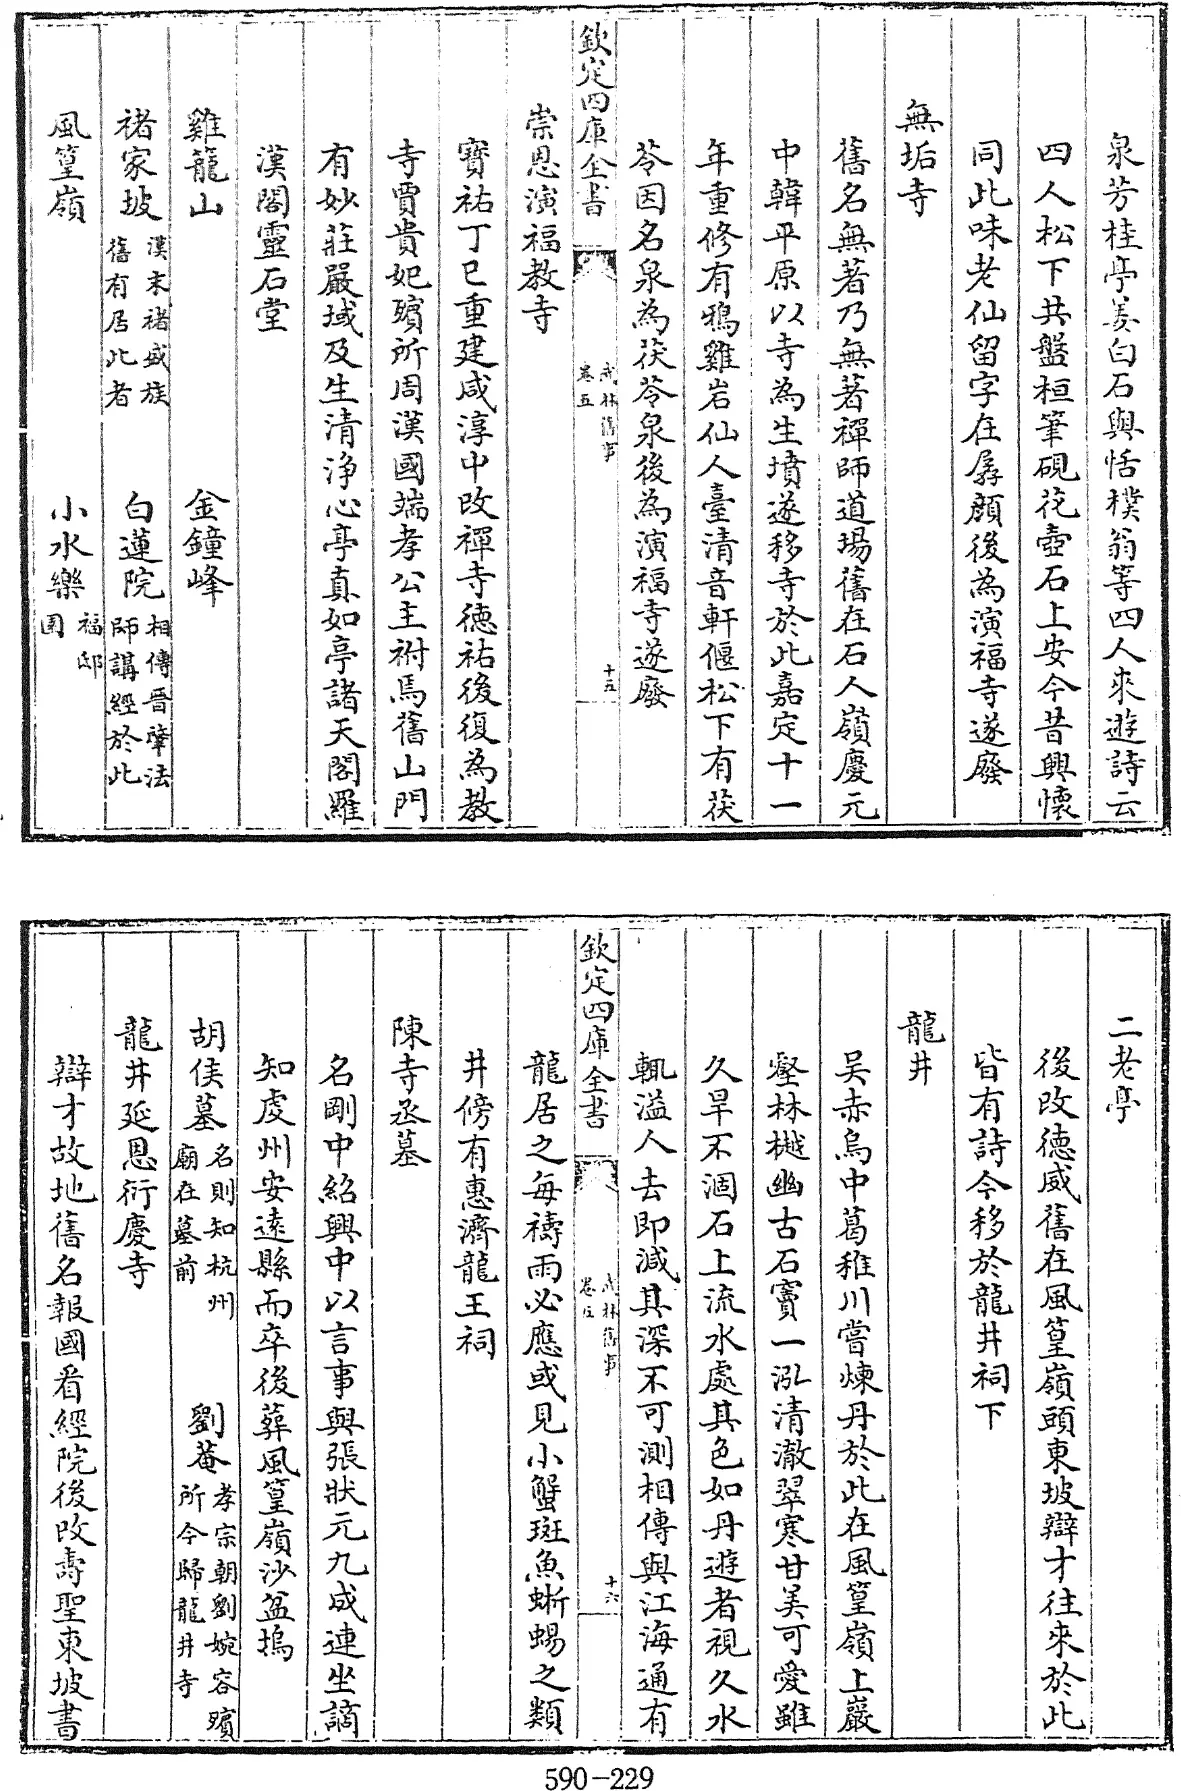 泉芳桂亭姜白石與恬樸翁等四人來遊詩云
四人松下共盤桓筆硯花壺石上安今昔興懷
同此味老仙留字在孱顏後為演福寺遂廢
無垢寺
舊名無著乃無著禪師道場舊在石人嶺慶元
中韓平原以寺為生墳遂移寺於此嘉定十一
年重修有鴉雞岩仙人臺清音軒偃松下有茯
苓因名泉為茯苓泉後為演福寺遂廢
欽定四庫全書 武林舊事 卷五 十五
崇恩演福教寺
寶祐丁巳重建咸淳中改禪寺德祐後復為教
寺賈貴妃殯所周漢國端孝公主祔焉舊山門
有妙莊嚴域及生清淨心亭真如亭諸天閣羅
漢閣靈石堂
雞籠山 金鐘峰
褚家坡 漢末褚盛族舊有居此者 白蓮院 相傳晉肇法師講經於此
風篁嶺 小水樂 福邸園
二老亭
後改德威舊在風篁嶺頭東坡辯才往來於此
皆有詩今移於龍井祠下
龍井
吳赤烏中葛稚川嘗煉丹於此在風篁嶺上巖
壑林樾幽古石竇一泓清澈翠寒甘美可愛雖
久旱不涸石上流水處其色如丹遊者視久水
輒溢人去即減其深不可測相傳與江海通有
欽定四庫全書 武林舊事 卷五 十六
龍居之每禱雨必應或見小蟹斑魚蜥蜴之類
井傍有惠濟龍王祠
陳寺丞墓
名剛中紹興中以言事與張狀元九成連坐謫
知虔州安遠縣而卒後葬風篁嶺沙盆塢
胡侯墓 名則知杭州廟在墓前 劉菴 孝宗朝劉婉容殯所今歸龍井寺
龍井延恩衍慶寺
辯才故地舊名報國看經院後改壽聖東坡書
590-229